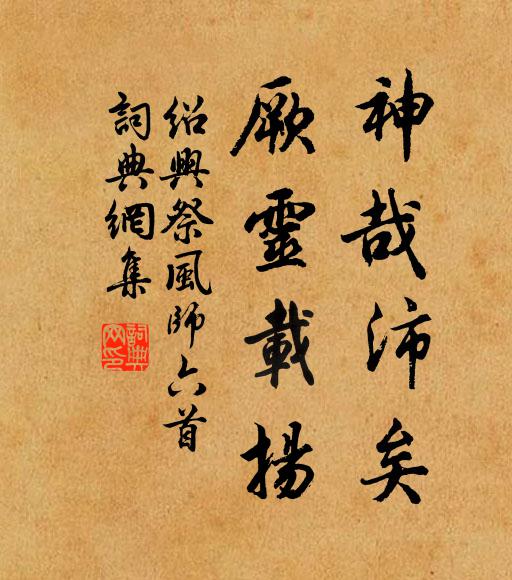 神哉沛矣
厥靈載揚
紹興祭風師六首
詞典網集
詞典網印